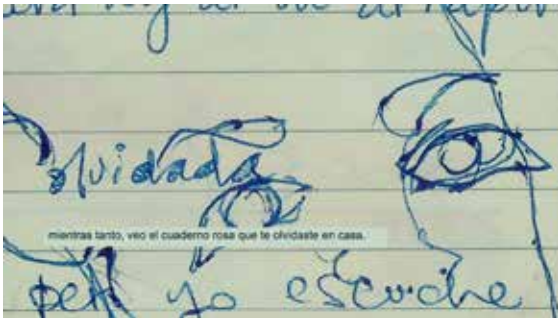 olvidada
mientras tanto, veo el cuaderno rosa que te olvidaste en casa.
pero yo escuche